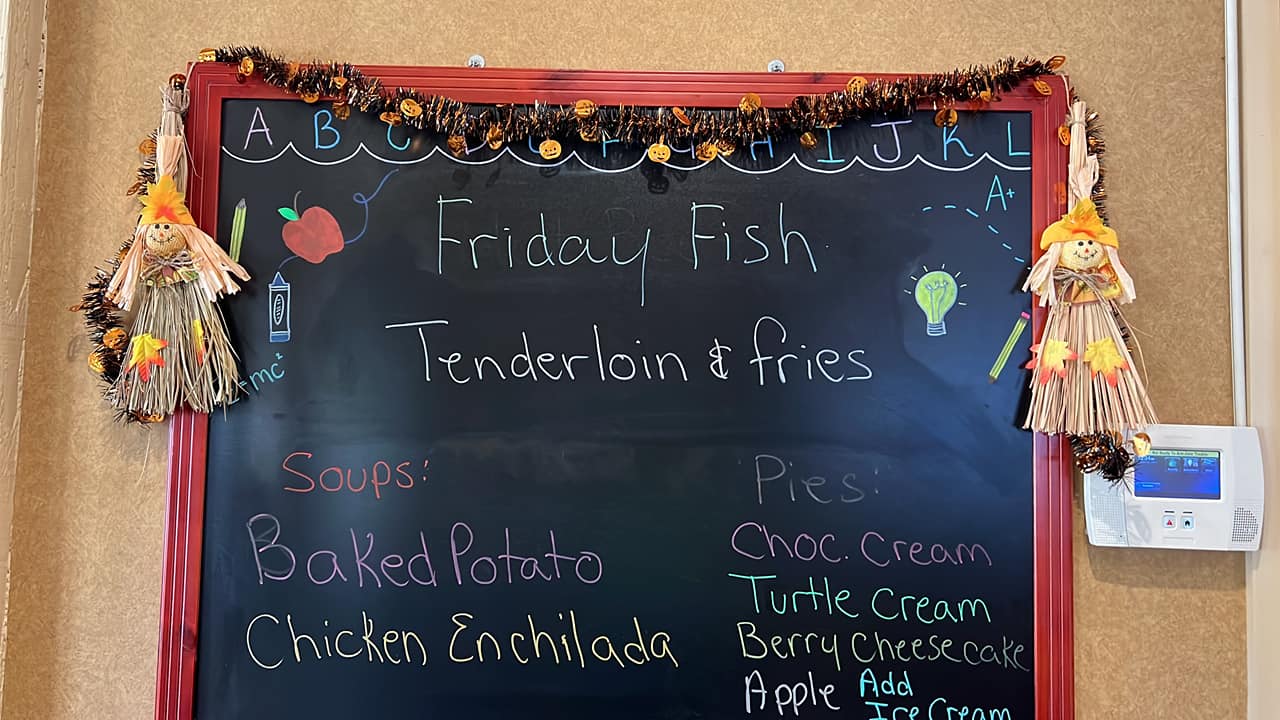 A B C D E F G H I J K L
A+
Friday Fish
Tenderloin & fries
=mc²
Soups:
Baked Potato
Chicken Enchilada
Pies:
Choc. Cream
Turtle Cream
Berry Cheesecake
Apple Add
Ice Cream